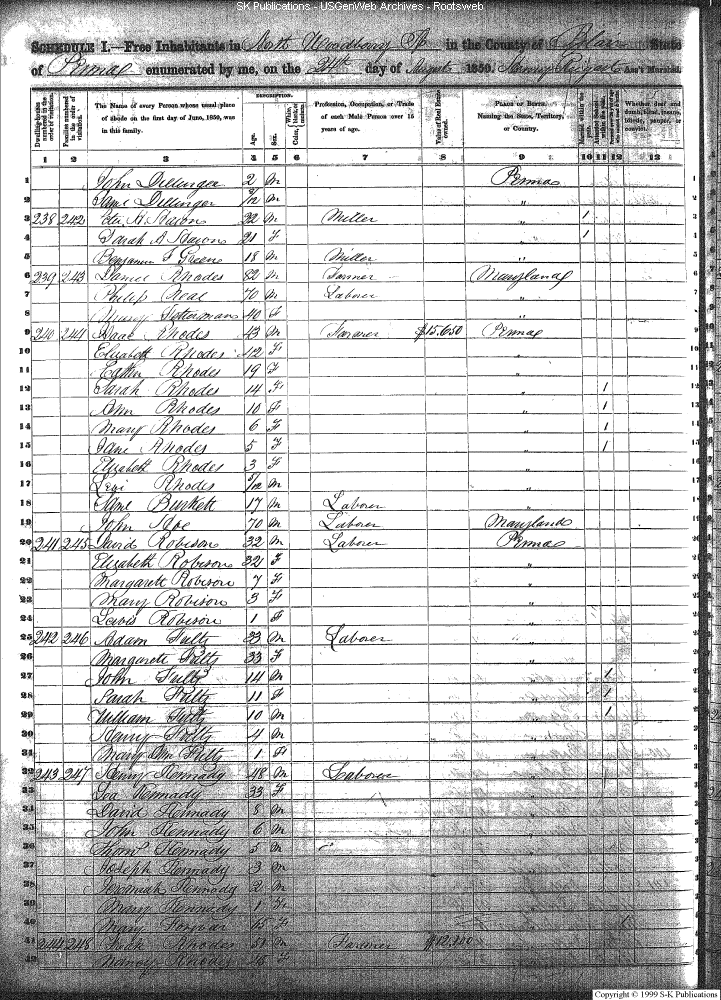 SK Publications - USGenWeb Archives - Rootsweb
SCHEDULE I.—Free Inhabitants in North Woodberry Tp in the County of Blair State
of Penna enumerated by me, on the 24th day of August 1850. Ass't Marshal.
DESCRIPTION.
Dwelling-houses numbered in the order of visitation.
Families numbered in the order of visitation.
The Name of every Person whose usual place of abode on the first day of June, 1850, was in this family.
Age.
Sex.
Color, White, black, or mulatto.
Profession, Occupation, or Trade of each Male Person over 15 years of age.
Value of Real Estate owned.
PLACE OF BIRTH. Naming the State, Territory, or Country.
Married within the year.
Attended School within the year.
Whether deaf and dumb, blind, insane, idiotic, pauper, or convict.
1 2 3 4 5 6 7 8 9 10 11 12 13
1 John Dillinger 2 m Penna
2 Saml Dillinger /12 m "
3 238 242 22 m Miller " 1
4 Sarah A 21 f " 1
5 Benjamin F Greene 18 m Miller "
6 239 243 Daniel Rhodes 82 m Farmer Maryland
7 Philip 70 m Laborer "
8 40 f "
9 240 244 Isaac Rhodes 43 m Farmer $15,650 Penna
10 Elizabeth Rhodes 42 f "
11 Rhodes 19 f "
12 Sarah Rhodes 14 f " 1
13 Ann Rhodes 10 f " 1
14 Mary Rhodes 6 f " 1
15 Jane Rhodes 5 f " 1
16 Elizabeth Rhodes 3 f "
17 Levi Rhodes /12 m "
18 Saml Burkett 17 m Laborer "
19 John 70 m Laborer Maryland
20 241 245 David Robison 32 m Laborer Penna
21 Elizabeth Robison 32 f "
22 Margarete Robison 7 f "
23 Mary Robison 3 f "
24 Lewis Robison 1 "
25 242 246 Adam Fultz 33 m Laborer "
26 Margarete Fultz 33 f "
27 John Fultz 14 m " 1
28 Sarah Fultz 11 f " 1
29 William Fultz 10 m " 1
30 Henry Fultz 4 m "
31 Mary Ann Fultz 1 f "
32 243 247 Henry Kennady 48 m Laborer "
33 Kennady 33 f "
34 David Kennady 8 m "
35 John Kennady 6 m "
36 Thoms Kennady 5 m "
37 Joseph Kennady 3 m "
38 Jeremiah Kennady 2 m "
39 Mary Kennady 1 "
40 Mary 15 f "
41 244 248 Rhodes 51 m Farmer "
42 Nancy Rhodes f "
Copyright © 1999 S-K Publications